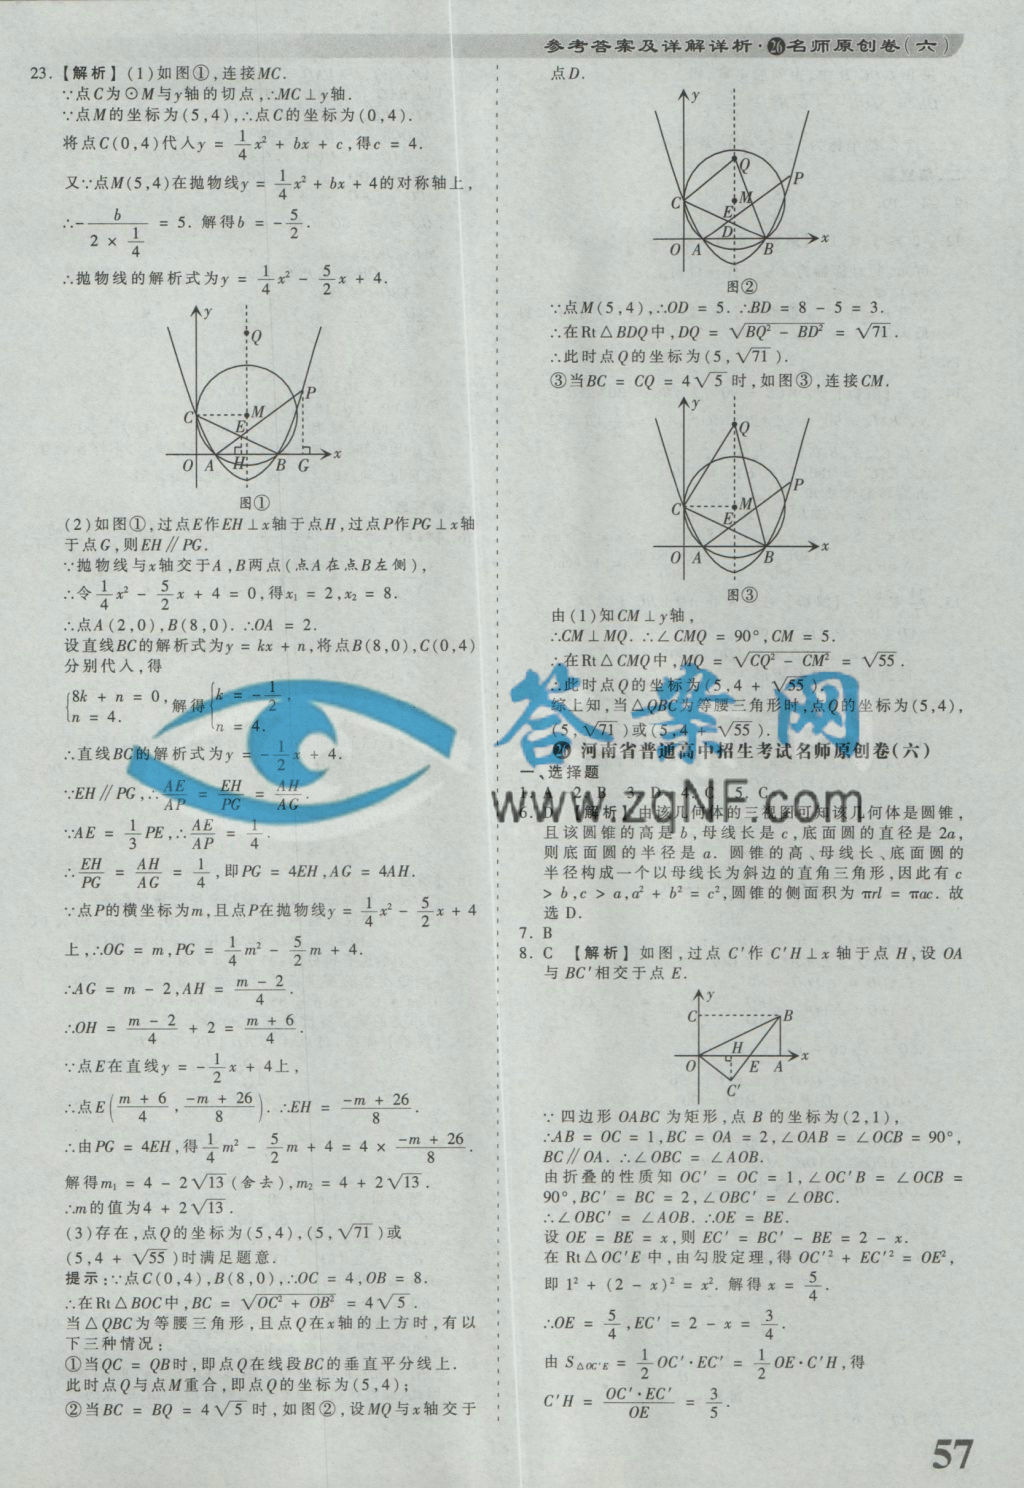 参考答案及详解详析·26名师原创卷(六)
23.【解析】(1)如图①,连接MC.
∵点C为⊙M与y轴的切点,∴MC⊥y轴.
∵点M的坐标为(5,4),∴点C的坐标为(0,4).
将点C(0,4)代入y = 1/4 x² + bx + c,得c = 4.
又∵点M(5,4)在抛物线y = 1/4 x² + bx + 4的对称轴上,
∴- b/(2 × 1/4) = 5. 解得b = - 5/2.
∴抛物线的解析式为y = 1/4 x² - 5/2 x + 4.
y
Q
P
C
M
E
O A H B G x
图①
(2)如图①,过点E作EH⊥x轴于点H,过点P作PG⊥x轴
于点G,则EH∥PG.
∵抛物线与x轴交于A,B两点(点A在点B左侧),
∴令 1/4 x² - 5/2 x + 4 = 0,得x₁ = 2,x₂ = 8.
∴点A(2,0),B(8,0). ∴OA = 2.
设直线BC的解析式为y = kx + n,将点B(8,0),C(0,4)
分别代入,得
{8k + n = 0, n = 4. 解得{k = - 1/2, n = 4.
∴直线BC的解析式为y = - 1/2 x + 4.
∵EH∥PG,∴ AE/AP = EH/PG = AH/AG.
∵AE = 1/3 PE,∴ AE/AP = 1/4.
∴ EH/PG = AH/AG = 1/4,即PG = 4EH,AG = 4AH.
∵点P的横坐标为m,且点P在抛物线y = 1/4 x² - 5/2 x + 4
上,∴OG = m,PG = 1/4 m² - 5/2 m + 4.
∴AG = m - 2,AH = (m - 2)/4.
∴OH = (m - 2)/4 + 2 = (m + 6)/4.
∵点E在直线y = - 1/2 x + 4上,
∴点E((m + 6)/4, (-m + 26)/8). ∴EH = (-m + 26)/8.
∴由PG = 4EH,得 1/4 m² - 5/2 m + 4 = 4 × (-m + 26)/8.
解得m₁ = 4 - 2√13(舍去),m₂ = 4 + 2√13.
∴m的值为4 + 2√13.
(3)存在,点Q的坐标为(5,4),(5,√71)或
(5,4 + √55)时满足题意.
提示:∵点C(0,4),B(8,0),∴OC = 4,OB = 8.
∴在Rt△BOC中,BC = √(OC² + OB²) = 4√5.
当△QBC为等腰三角形,且点Q在x轴的上方时,有以
下三种情况:
①当QC = QB时,即点Q在线段BC的垂直平分线上.
此时点Q与点M重合,即点Q的坐标为(5,4);
②当BC = BQ = 4√5时,如图②,设MQ与x轴交于
点D.
y
Q
P
C
M
E
D
O A B x
图②
∵点M(5,4),∴OD = 5. ∴BD = 8 - 5 = 3.
∴在Rt△BDQ中,DQ = √(BQ² - BD²) = √71.
∴此时点Q的坐标为(5,√71).
③当BC = CQ = 4√5时,如图③,连接CM.
y
Q
P
C
M
E
O A B x
图③
由(1)知CM⊥y轴,
∴CM⊥MQ. ∴∠CMQ = 90°,CM = 5.
∴在Rt△CMQ中,MQ = √(CQ² - CM²) = √55.
∴此时点Q的坐标为(5,4 + √55).
综上知,当△QBC为等腰三角形时,点Q的坐标为(5,4),
(5,√71)或(5,4 + √55).
答案网
www.zqNF.com
26 河南省普通高中招生考试名师原创卷(六)
一、选择题
1. A 2. B 3. D 4. C 5. C
6. D 【解析】由该几何体的三视图可知该几何体是圆锥,
且该圆锥的高是b,母线长是c,底面圆的直径是2a,
则底面圆的半径是a. 圆锥的高、母线长、底面圆的
半径构成一个以母线长为斜边的直角三角形,因此有c
> b,c > a,a² + b² = c²,圆锥的侧面积为πrl = πac. 故
选D.
7. B
8. C 【解析】如图,过点C′作C′H⊥x轴于点H,设OA
与BC′相交于点E.
y
C B
H
O E A x
C′
∵四边形OABC为矩形,点B的坐标为(2,1),
∴AB = OC = 1,BC = OA = 2,∠OAB = ∠OCB = 90°,
BC∥OA. ∴∠OBC = ∠AOB.
由折叠的性质知OC′ = OC = 1,∠OC′B = ∠OCB =
90°,BC′ = BC = 2,∠OBC′ = ∠OBC.
∴∠OBC′ = ∠AOB. ∴OE = BE.
设OE = BE = x,则EC′ = BC′ - BE = 2 - x.
在Rt△OC′E中,由勾股定理,得OC′² + EC′² = OE²,
即1² + (2 - x)² = x². 解得x = 5/4.
∴OE = 5/4,EC′ = 2 - x = 3/4.
由S△OC′E = 1/2 OC′·EC′ = 1/2 OE·C′H,得
C′H = (OC′·EC′)/OE = 3/5.
57